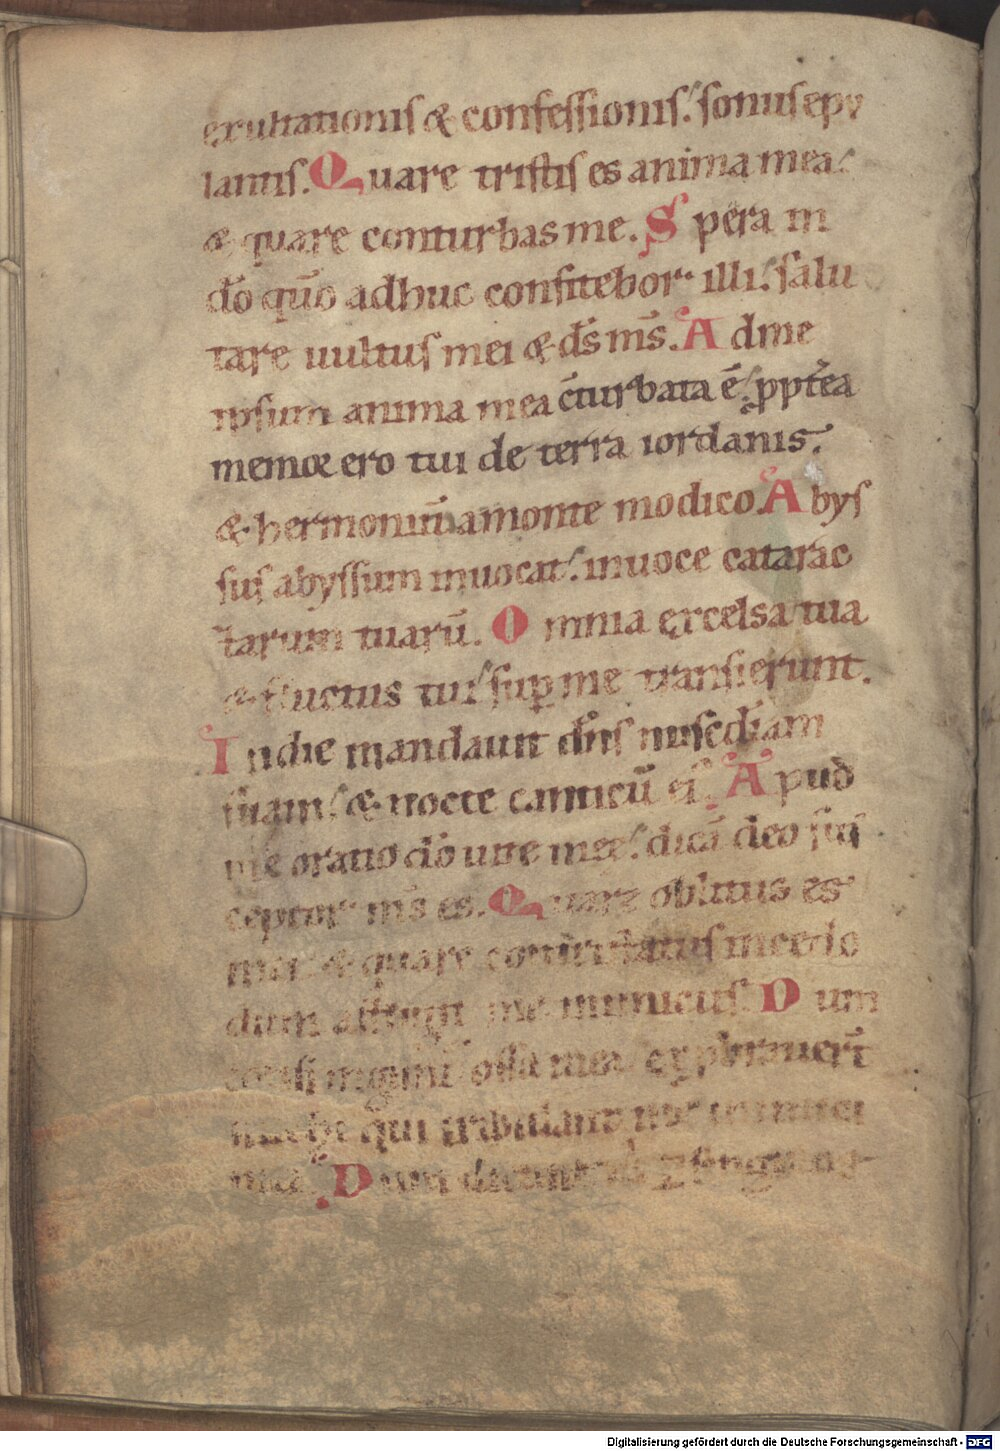 exultationis & confessionis: sonus epu
lantis. Quare tristis es anima mea:
& quare conturbas me. Spera in
dō qūo adhuc confitebor illi: salu
tare uultus mei & ds̄ ms̄. Ad me
ipsum anima mea c̄turbata ē: ppt̄ea
memor ero tui de terra iordanis:
& hermoniīm a monte modico. Abys
sus abyssum inuocat: inuoce catarac
tarum tuarū. Omnia excelsa tua
& fluctus tui sup me transierunt.
In die mandauit dn̄s misc̄diam
suam: & nocte canticū ei. Apud
me oratio dō uite meę: dicā deo sus
ceptor ms̄ es. Quare oblitus es
mei & quare contristatus incedo
dum affligit me inimicus. Dum
ossa mea
qui tribulant me inimici
mei. Dum dicunt
Digitalisierung gefördert durch die Deutsche Forschungsgemeinschaft - DFG